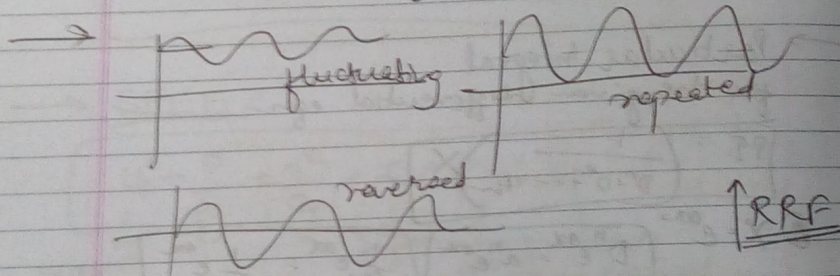 fluctuating
repeated
reversed
↑RRF